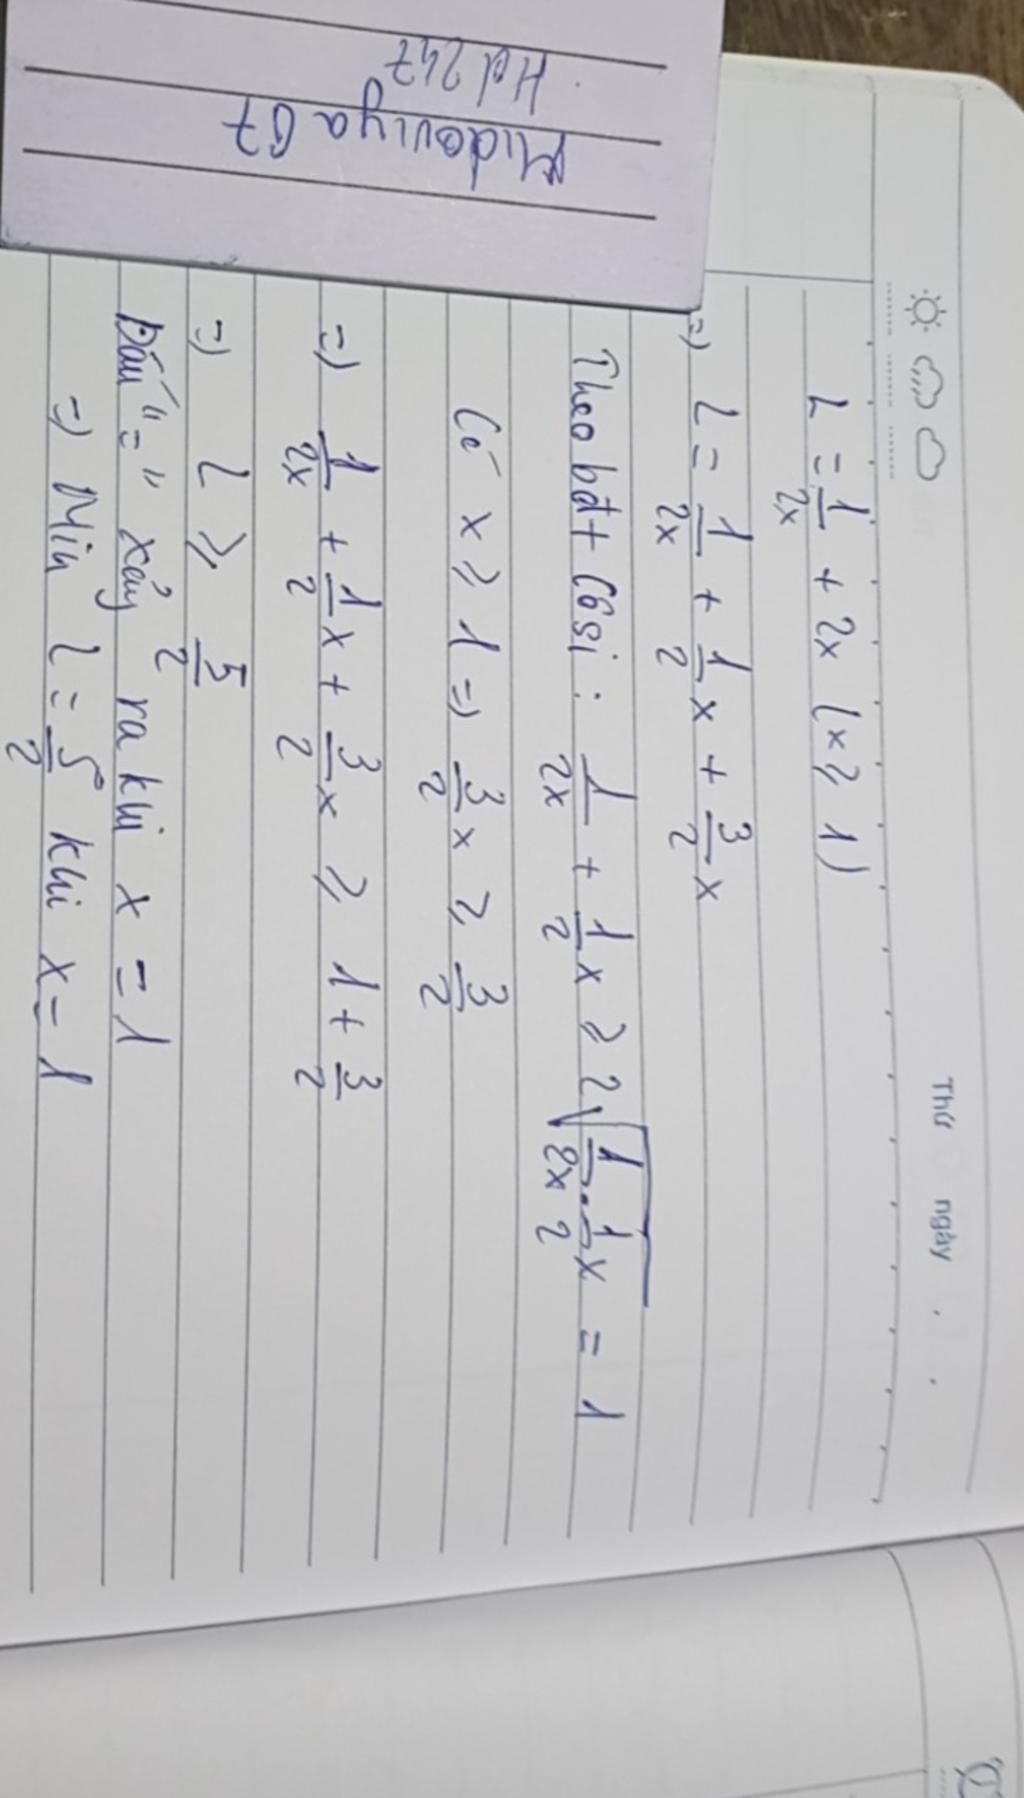 Midoviya 67
Hd 247
Thứ ngày . .
L = 1/2x + 2x (x ≥ 1)
=) L = 1/2x + 1/2 x + 3/2 x
Theo bđt Côsi : 1/2x + 1/2 x ≥ 2√(1/2x . 1/2 x) = 1
Có x ≥ 1 =) 3/2 x ≥ 3/2
=) 1/2x + 1/2 x + 3/2 x ≥ 1 + 3/2
=) L ≥ 5/2
Dấu "=" xảy ra khi x = 1
=) Min L = 5/2 khi x = 1